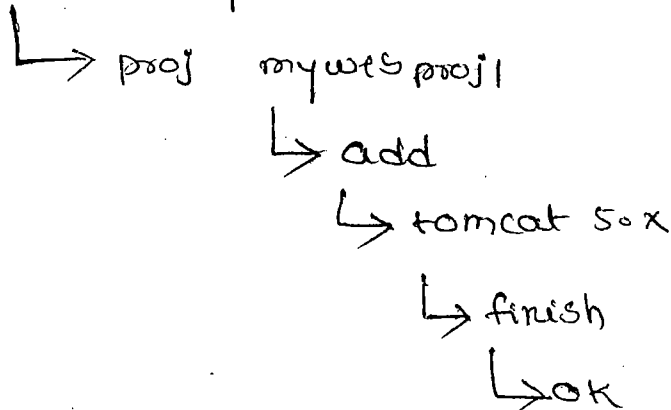 ↳ proj mywebproj1
↳ add
↳ tomcat 5.x
↳ finish
↳ ok